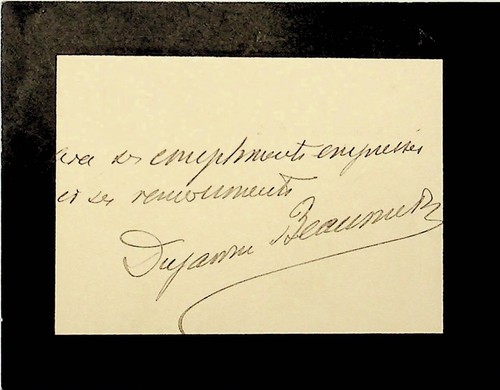 avec ses compliments empressés
et ses remerciements
Dujardin Beaumetz